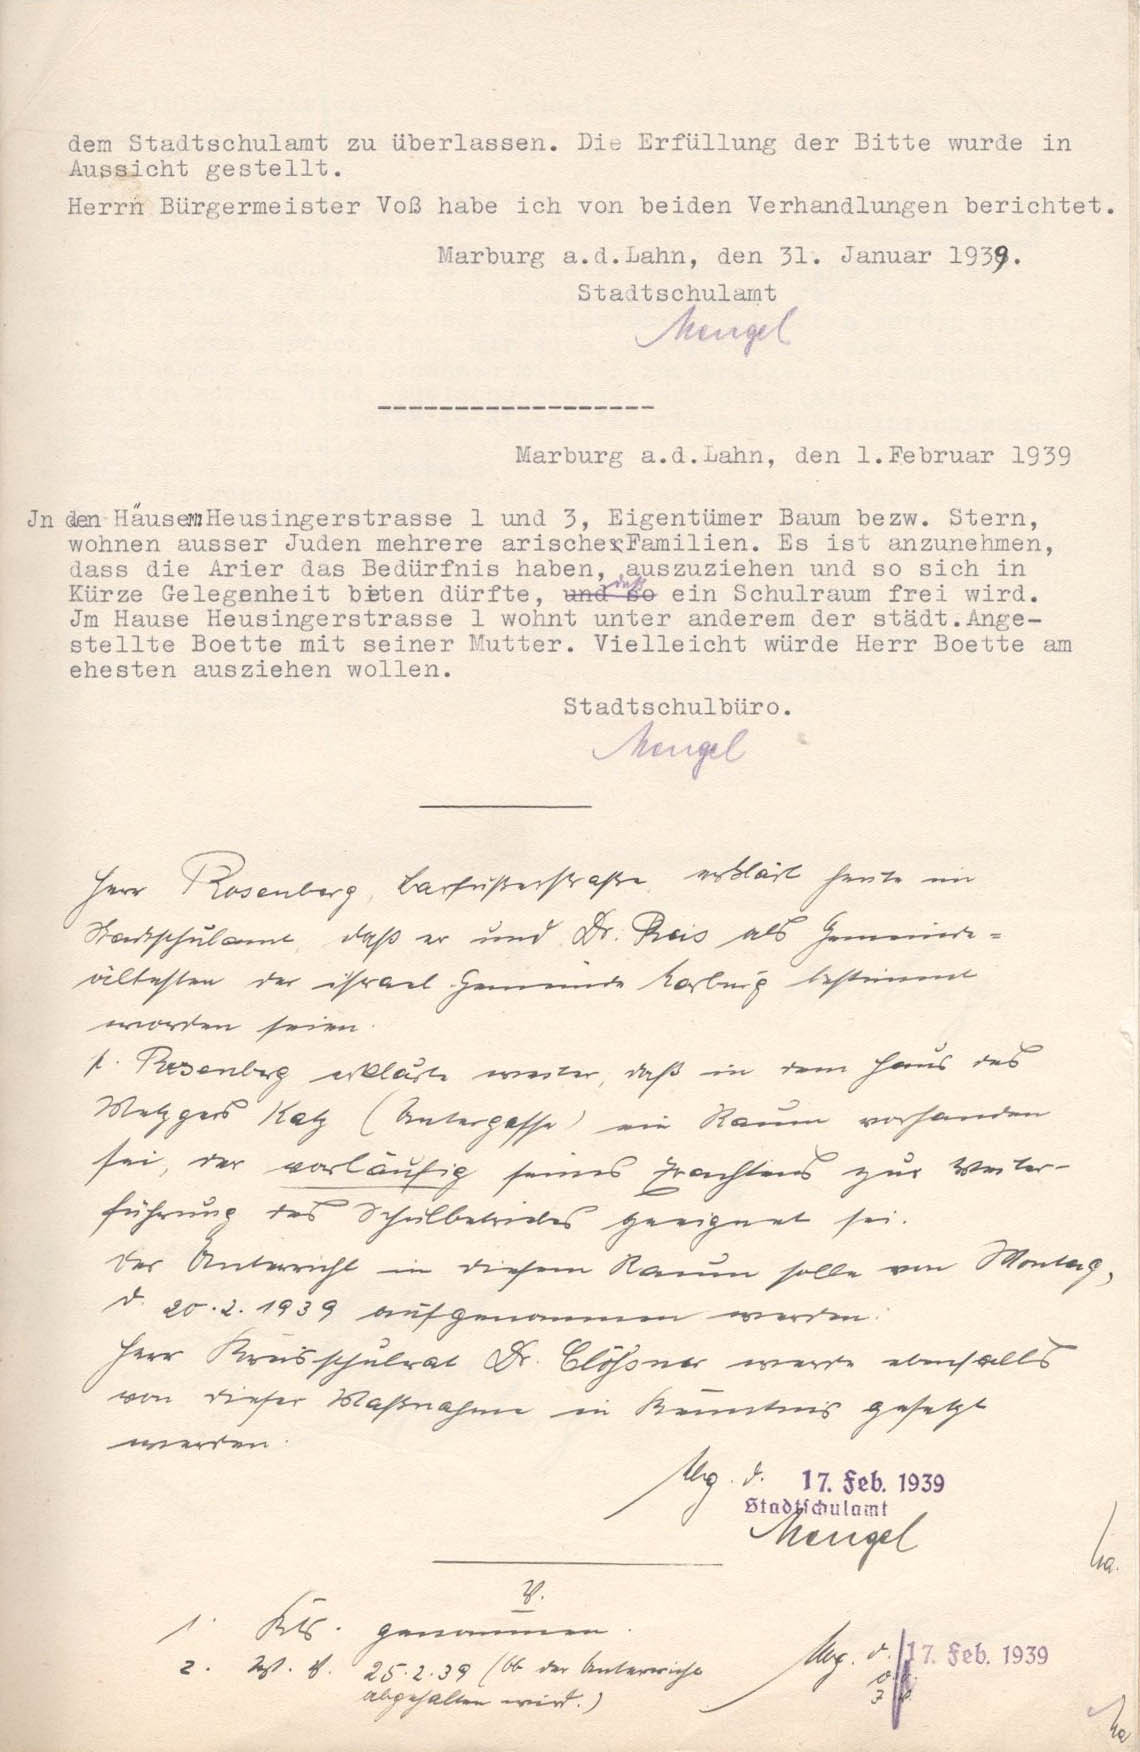 dem Stadtschulamt zu überlassen. Die Erfüllung der Bitte wurde in
Aussicht gestellt.
Herrn Bürgermeister Voß habe ich von beiden Verhandlungen berichtet.
Marburg a.d.Lahn, den 31. Januar 1939.
Stadtschulamt
Mengel
Marburg a.d.Lahn, den 1.Februar 1939
Jn den Häusern Heusingerstrasse 1 und 3, Eigentümer Baum bezw. Stern,
wohnen ausser Juden mehrere arische Familien. Es ist anzunehmen,
dass die Arier das Bedürfnis haben, auszuziehen und so sich in
Kürze Gelegenheit bieten dürfte, und so daß ein Schulraum frei wird.
Jm Hause Heusingerstrasse 1 wohnt unter anderem der städt.Ange-
stellte Boette mit seiner Mutter. Vielleicht würde Herr Boette am
ehesten ausziehen wollen.
Stadtschulbüro.
Mengel
Herr Rosenberg, Barfüßerstraße, erklärt heute im
Stadtschulamt, daß er und Dr. Reis als Gemeinde=
ältesten der israel. Gemeinde Marburg bestimmt
worden seien.
H. Rosenberg erklärte weiter, daß in dem Haus des
Metzgers Katz (Untergasse) ein Raum vorhanden
sei, der vorläufig seines Erachtens zur Weiter-
führung des Schulbetriebes geeignet sei.
Der Unterricht in diesem Raum solle von Montag,
d. 20.2.1939 aufgenommen werden.
Herr Kreisschulrat Dr. Clößner werde ebenfalls
von dieser Maßnahme in Kenntnis gesetzt
werden.
Mbg. d. 17. Feb. 1939
Stadtschulamt
Mengel
V.
1. Kts. genommen.
2. W. V. 25.2.39 (Ob der Unterricht
abgehalten wird.)
Mbg. d. 17. Feb. 1939